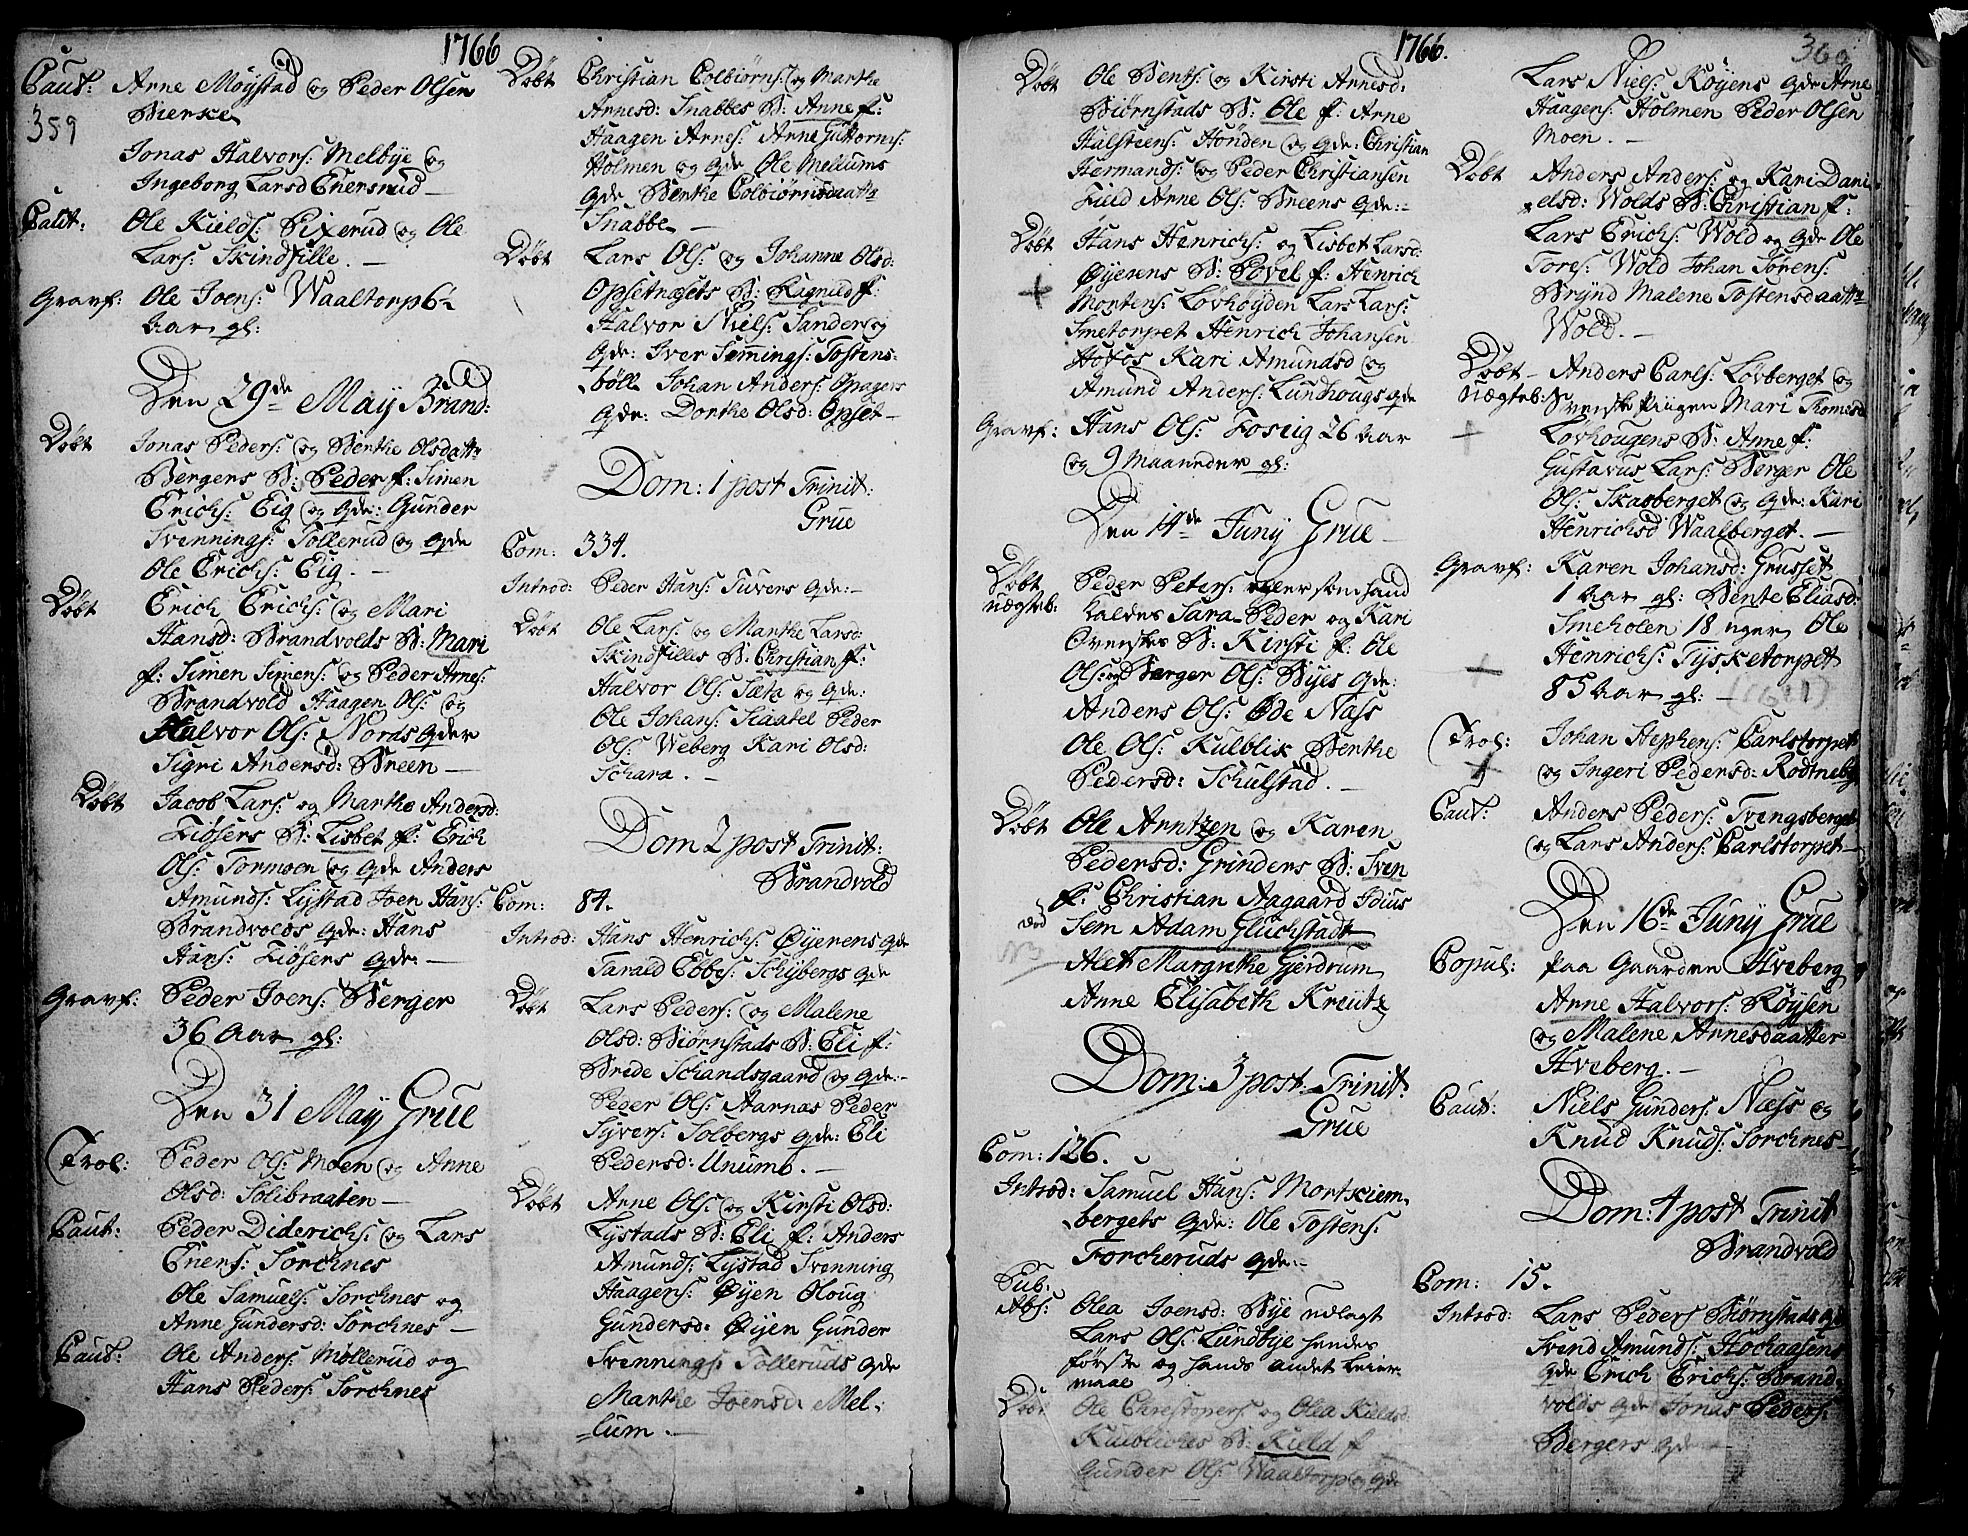 1766
Caut: Arne Møystad og Peder Olsen
359 Bierke
Jonas Halvors: Melbye og
Ingeborg Larsd Enersrud
Caut: Ole Kields: Pixerud og Ole
Lars: Skindfille.
Gravf: Ole Joens: Waaltorp
aar gl:
Den 29de May Brand:
Døbt Jonas Peders: og Berthe Olsdattr
Bergers B: Peder f: Simen
Erichs: Eig og qde: Gunder
Svennings: Tollerud og qde
Ole Erichs: Eig.
Døbt Erich Erichs: og Mari
Hansd: Brandvolds B: Mari
f: Simen Simens: og Peder Arnes:
Brandvold Haagen Ols: og
Halvor Ols: Nords qder
Sigri Andersd: Breen
Døbt Jacob Lars: og Marthe Andersd:
Fiøsers B: Lisbet f: Erich
Ols: Tormoen og qde Anders
Amunds: Lystad Joen Hans:
Brandvolds qde: Hans
Hans: Fiøsers qde:
Gravf: Peder Joens: Berger
36 Aar gl:
Den 31 May Grue
Trol: Peder Ols: Moen og Anne
Olsd: Solibraaten
Caut: Peder Diderichs: og Lars
Eners: Sorchnes
Ole Samuels: Sorchnes og
Anne Gundersd: Sorchnes
Caut: Ole Anders: Møllerud og
Hans Peders: Sorchnes
Døbt Christian Colbiørns: og Marthe
Arnesd: Snabbes B: Anne f:
Haagen Arnes: Arne Guttorms:
Holmen og qde Ole Mellums
qde Berthe Colbiørnsdaattr
Snabbe
Døbt Lars Ols: og Johanne Olsd:
Opsetnøsets B: Ragnild f:
Halvor Niels: Sanders og
qde: Iver Semmings: Tostens-
bøll Johan Anders: Opagers
qde: Dorthe Olsd: Opset
Dom: 1 post Trinit:
Grue
Com: 334.
Introd: Peder Hans: Tuvens qde:
Døbt Ole Lars: og Marthe Larsd:
Skindfilles B: Christian f:
Halvor Ols: Sæta og qde:
Ole Johans: Skaatel Peder
Ols: Weberg Kari Olsd:
Schara.
Dom 2 post Trinit:
Brandvold
Com: 84.
Introd: Hans Henrichs: Øyerens qde
Tarald Ebbes: Schybergs qde
Døbt Lars Peders: og Malene
Olsd: Biørnstads B: Eli f:
Brede Schandsgaard og qde:
Peder Ols: Aarnæs Peder
Syvers: Solbergs qde: Eli
Pedersd: Unumb.
Døbt Arne Ols: og Kirsti Olsd:
Lystads B: Eli f: Anders
Amunds: Lystad Svenning
Haagers: Øyen Oloug
Gundersd: Øyen Gunder
Svennings: Tolleruds qde
Marthe Joensd: Mel-
lum.
1766.
Døbt Ole Bents: og Kirsti Arnesd:
Biørnstads B: Ole f: Arne
Halsteens: Hønden og qde: Christian
Hermands: og Peder Christiansen
Field Arne Ols: Breens qde:
Døbt Hans Henrichs: og Lisbet Larsd:
Øyerens B: Povel f: Henrich
Mortens: Løvhøyden Lars Lars:
Smetorpet Henrich Johansen
Hoffos Kari Amundsd og
Amund Anders: Lundhougs qde
Gravf: Hans Ols: Foseig 26 Aar
og 9 Maaneder gl:
Den 14de Juny Grue
Døbt Peder Peters: eller som hand
uægteb: kaldes Sara-Peder og Kari
Svenskes B: Kirsti f: Ole
Ols: og Berger Ols: Byes qde:
Anders Ols: Øde Næss
Ole Ols: Kulblik Berthe
Pedersd: Schulstad.
Døbt Ole Arntzen og Karen
Pedersd: Grinders B: Sven
f: Christian Aagaard Idius
Sem Adam Glückstadt
Alet Margrethe Gjerdrum
Anne Elisabeth Kreutz
Dom: 3 post: Trinit:
Grue
Com: 126.
Introd: Samuel Hans: Mortskiem-
bergets qde: Ole Tostens:
Forcheruds qde:
Pub:
Abs: Olea Joensd: Bye udlagt
Lars Ols: Lundbye hendes
første og hands andet leier-
maal
Døbt Ole Christopers: og Olea Kieldsd:
Kulbliches B: Kield f
Gunder Ols: Waaltorp og qde
360
Lars Niels: Røyens qde Arne
Haagens: Holmen Peder Olsen
Moen.
Døbt Anders Anders: og Kari Dani-
elsd: Wolds B: Christian f:
Lars Erichs: Wold og qde Ole
Tores: Wold Johan Sørens:
Brynd Malene Tostensdaattr
Wold.
Døbt Anders Carls: Løvberget og
uægteb: Svenske piigen Mari Thomesd
Løvhougens B: Anne f:
Gustavus Lars: Berger Ole
Ols: Skasberget og qde: Kari
Henrichsd Waalberget.
Gravf: Karen Johansd: Grusset
1 Aar gl: Bente Eliasd:
Smeholen 18 uger Ole
Henrichs: Tysketorpet
85 Aar gl:
Trol: Johan Stephens: Carlstorpet
og Ingeri Pedersd: Rodtneb
Caut: Anders Peders: Tvengsberget
og Lars Anders: Carlstorpet
Den 16de Juny Grue
Copul: paa Gaarden Hveberg
Anne Halvors: Røysen
og Malene Arnesdaatter
Hveberg.
Caut: Niels Gunders: Næss og
Knud Knuds: Sorchnes
Dom: 4 post Trinit
Brandvold
Com: 15.
Introd: Lars Peders Biørnstads qde
Svend Amunds: Hochaasens
qde Erich Erichs: Brand-
volds qde Jonas Peders:
Bergers qde